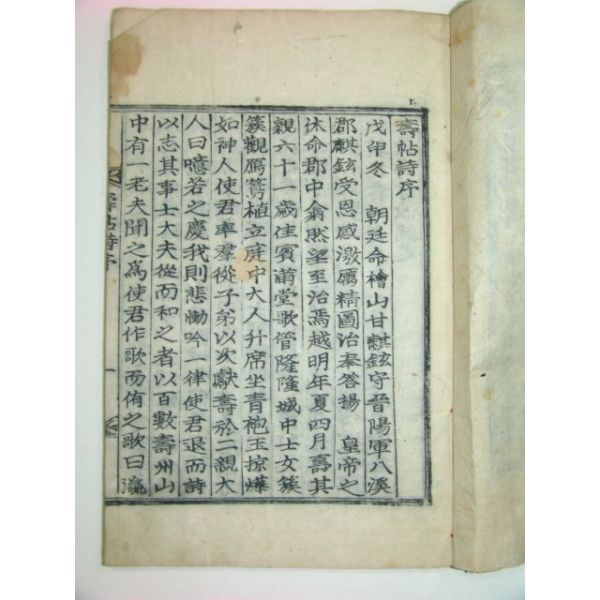 壽帖詩序
戊申冬　朝廷命檜山甘麒鉉守晉陽軍八溪
郡麒鉉受恩感激厲精圖治奉答揚　皇帝之
休命郡中翕然望至治焉越明年夏四月壽其
親六十一歲佳賓滿堂歌管隆隆城中士女簇
簇觀鴈鶩植立庭中大人升席坐青袍玉掠燁
如神人使君率羣從子弟以次獻壽於二親大
人曰噫若之慶我則悲慟吟一律使君退而詩
以志其事士大夫從而和之者以百數壽州山
中有一老夫聞之爲使君作歌而侑之歌曰瀛
壽帖詩序　一